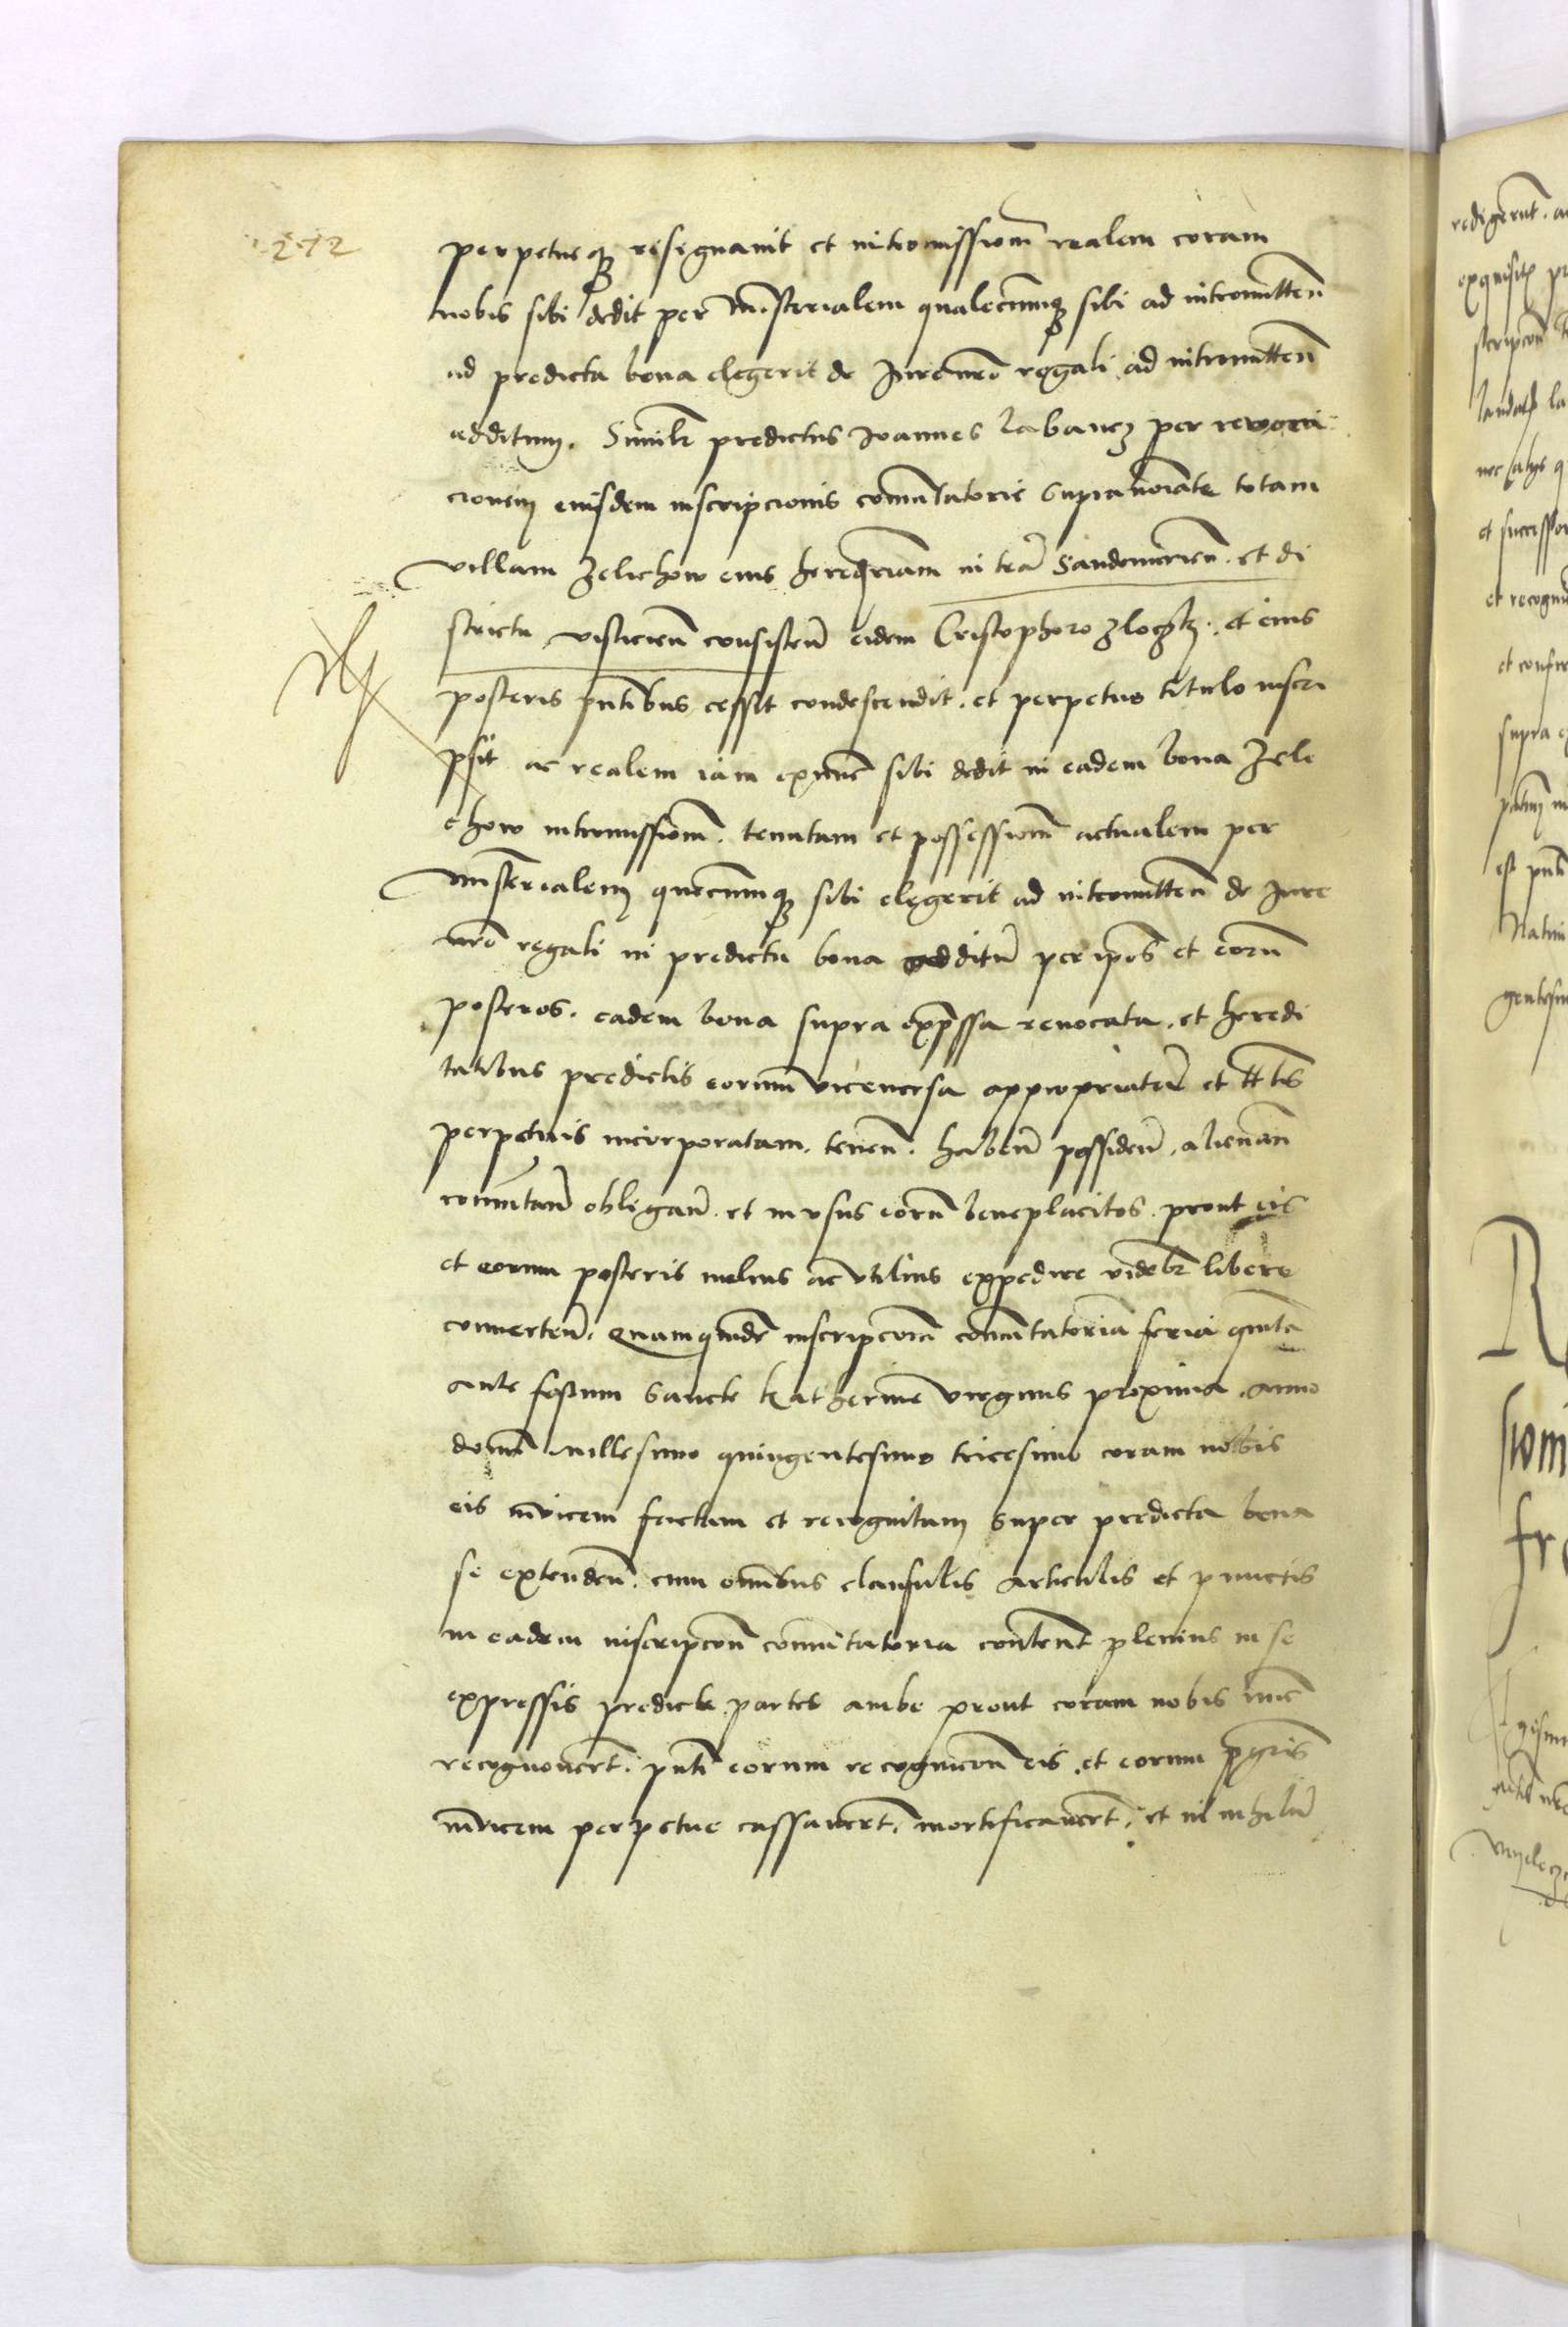 272
perpetueq resignavit et intromissionem realem coram
nobis sibi dedit per Ministerialem qualecumq sibi ad intromitten
ad predicta bona elegerit de Iure nro regali ad intromitten
additum. Similr predictus Ioannes Labancz per revoca
cionem eiusdem inscripcionis comutatorie supranoiate totam
villam Zelichow eius hereditariam in tera Sandomirien. et di
strictu visliciens consisten eidem Cristophoro Zloczky. et eius
posteris pntibus cessit condescendit. et perpetuo titulo inscri
psit ac realem iam exnunc sibi dedit in eadem bona Zele
chow intromissionem. tenutam et possessionem actualem per
ministerialem quecumq sibi elegerit ad intromitten de Iure
nro regali in predicta bona additum per ipos et eorum
posteros. eadem bona supra expressa revocata. et heredi
tatibus predictis eorum viceversa appropriatam et ttlis
perpetuis incorporatam. tenen. haben possiden. alienan
comutan obligan. et in usus eorum beneplacitos. prout eis
et eorum posteris melius ac utilius expedire videbr libere
converten. Quamquidem inscripcionem comutatoriam feria quinta
ante festum Sancte Katherine virginis proxima. anno
domini millesimo quingentesimo tricesimo coram nobis
eis invicem factam et recognitam super predicta bona
se extenden. cum omnibus clausulis articulis et punctis
in eadem inscripcon comutatoria content plenius in se
expressis predicte partes ambe prout coram nobis nunc
recognovert. pnti eorum recognicon eis. et eorum posteris
invicem perpetue cassavert. mortificavert. et in nihilum